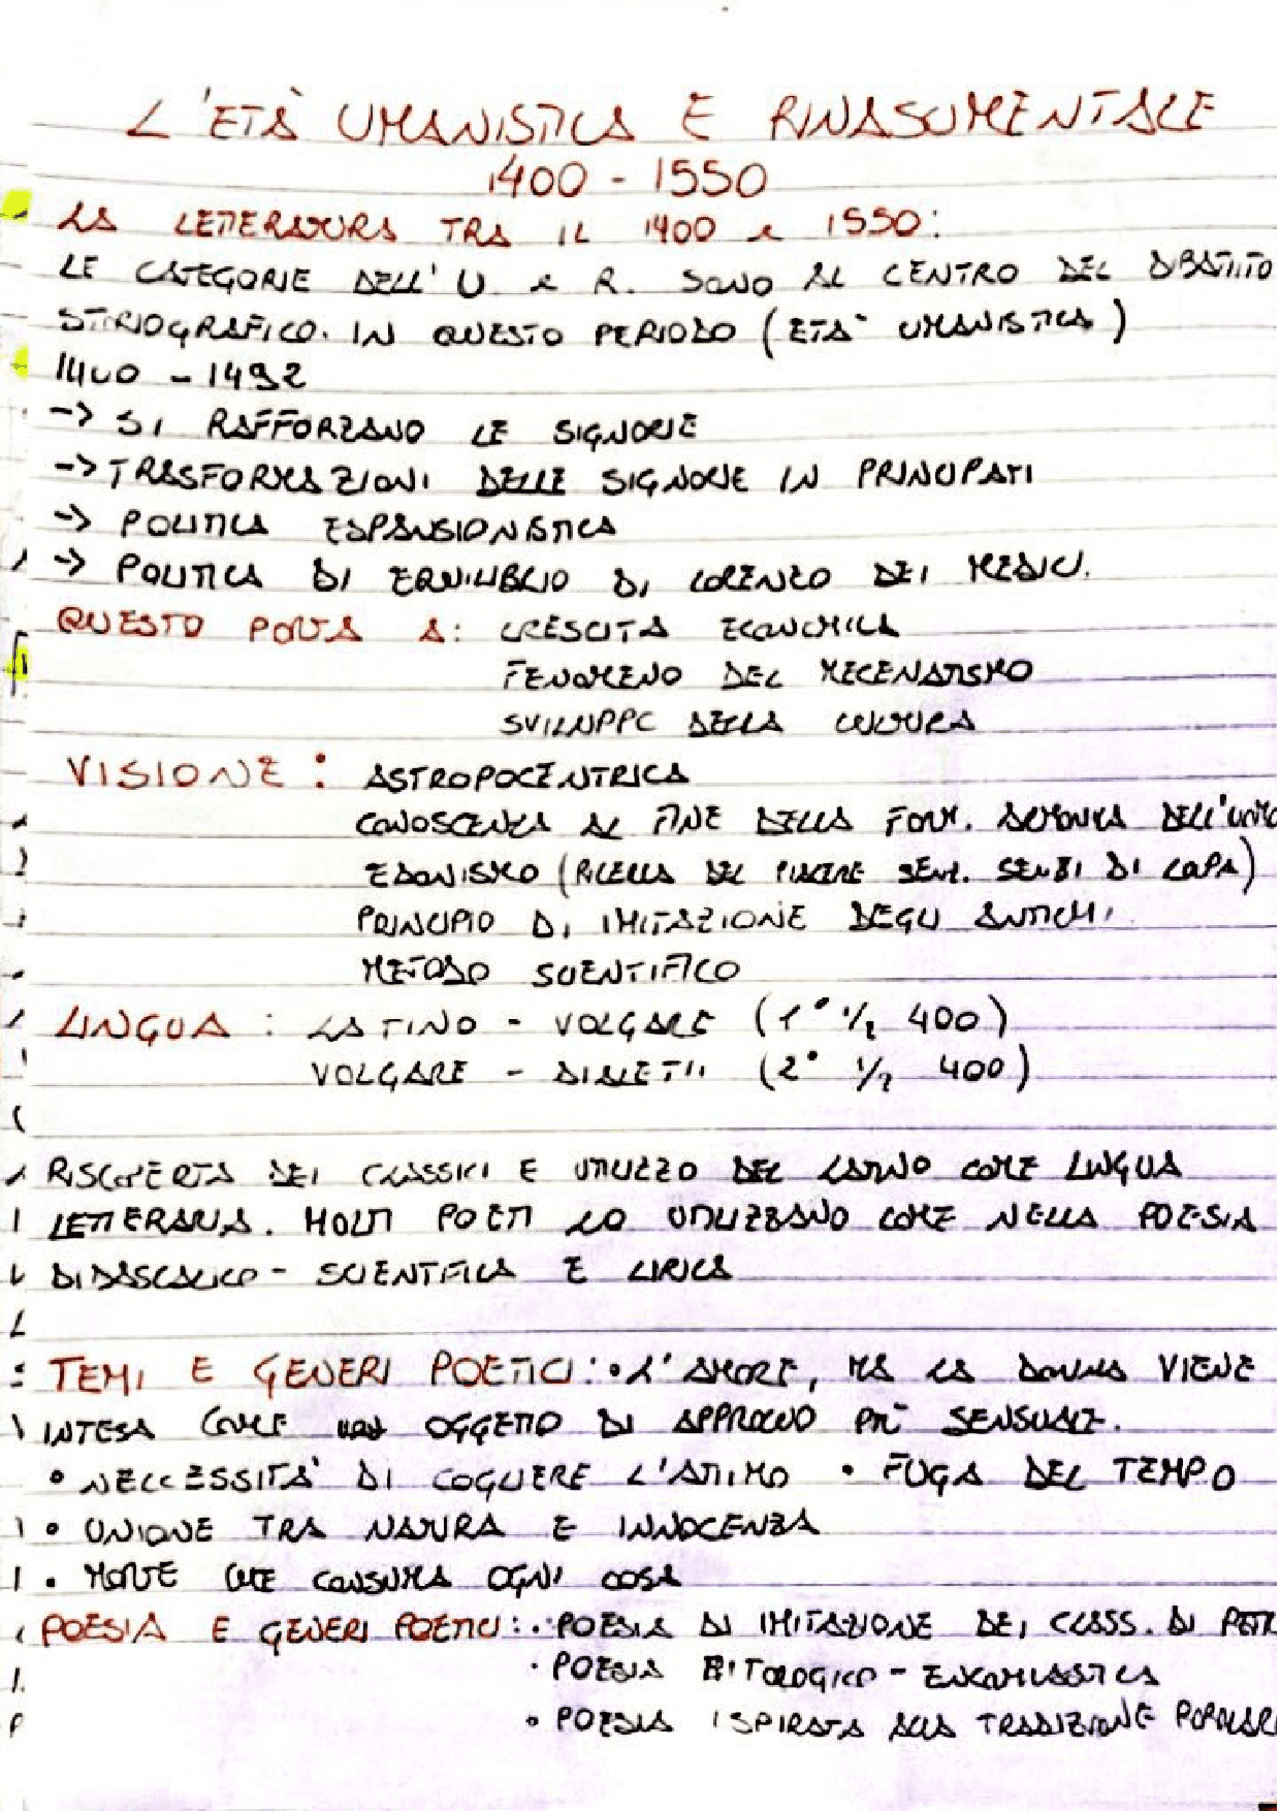 L'ETÀ UMANISTICA E RINASCIMENTALE
1400 - 1550
LA LETTERATURA TRA IL 1400 e 1550:
LE CATEGORIE DELL'U. e R. SONO AL CENTRO DEL DIBATTITO
STORIOGRAFICO. IN QUESTO PERIODO (ETA' UMANISTICA)
1400 - 1492
-> SI RAFFORZANO LE SIGNORIE
-> TRASFORMAZIONI DELLE SIGNORIE IN PRINCIPATI
-> POLITICA ESPANSIONISTICA
-> POLITICA DI EQUILIBRIO DI LORENZO DEI MEDICI.
QUESTO PORTA A: CRESCITA ECONOMICA
FENOMENO DEL MECENATISMO
SVILUPPO DELLA CULTURA
VISIONE: ASTROPOCENTRICA
CONOSCENZA AL FINE DELLA FORM. ARMONICA DELL'UOMO
EDONISMO (RICERCA DEL PIACERE SENZ. SENSI DI COLPA)
PRINCIPIO DI IMITAZIONE DEGLI ANTICHI
METODO SCIENTIFICO
LINGUA: LATINO - VOLGARE (1° 1/2 400)
VOLGARE - DIALETTI (2° 1/2 400)
RISCOPERTA DEI CLASSICI E UTILIZZO DEL LATINO COME LINGUA
LETTERARIA. MOLTI POETI LO UTILIZZANO COME NELLA POESIA
DIDASCALICO - SCIENTIFICA E LIRICA
TEMI E GENERI POETICI: • L'AMORE, MA LA DONNA VIENE
INTESA COME OGGETTO DI APPROCCIO PIÙ SENSUALE.
• NECCESSITÀ DI COGLIERE L'ATTIMO • FUGA DEL TEMPO
• UNIONE TRA NATURA E INNOCENZA
• MORTE CHE CONSUMA OGNI COSA
POESIA E GENERI POETICI: • POESIA DI IMITAZIONE DEI CLASS. DI PETR
• POESIA MITOLOGICO - ENCOMIASTICA
• POESIA ISPIRATA ALLA TRADIZIONE POPOLARE